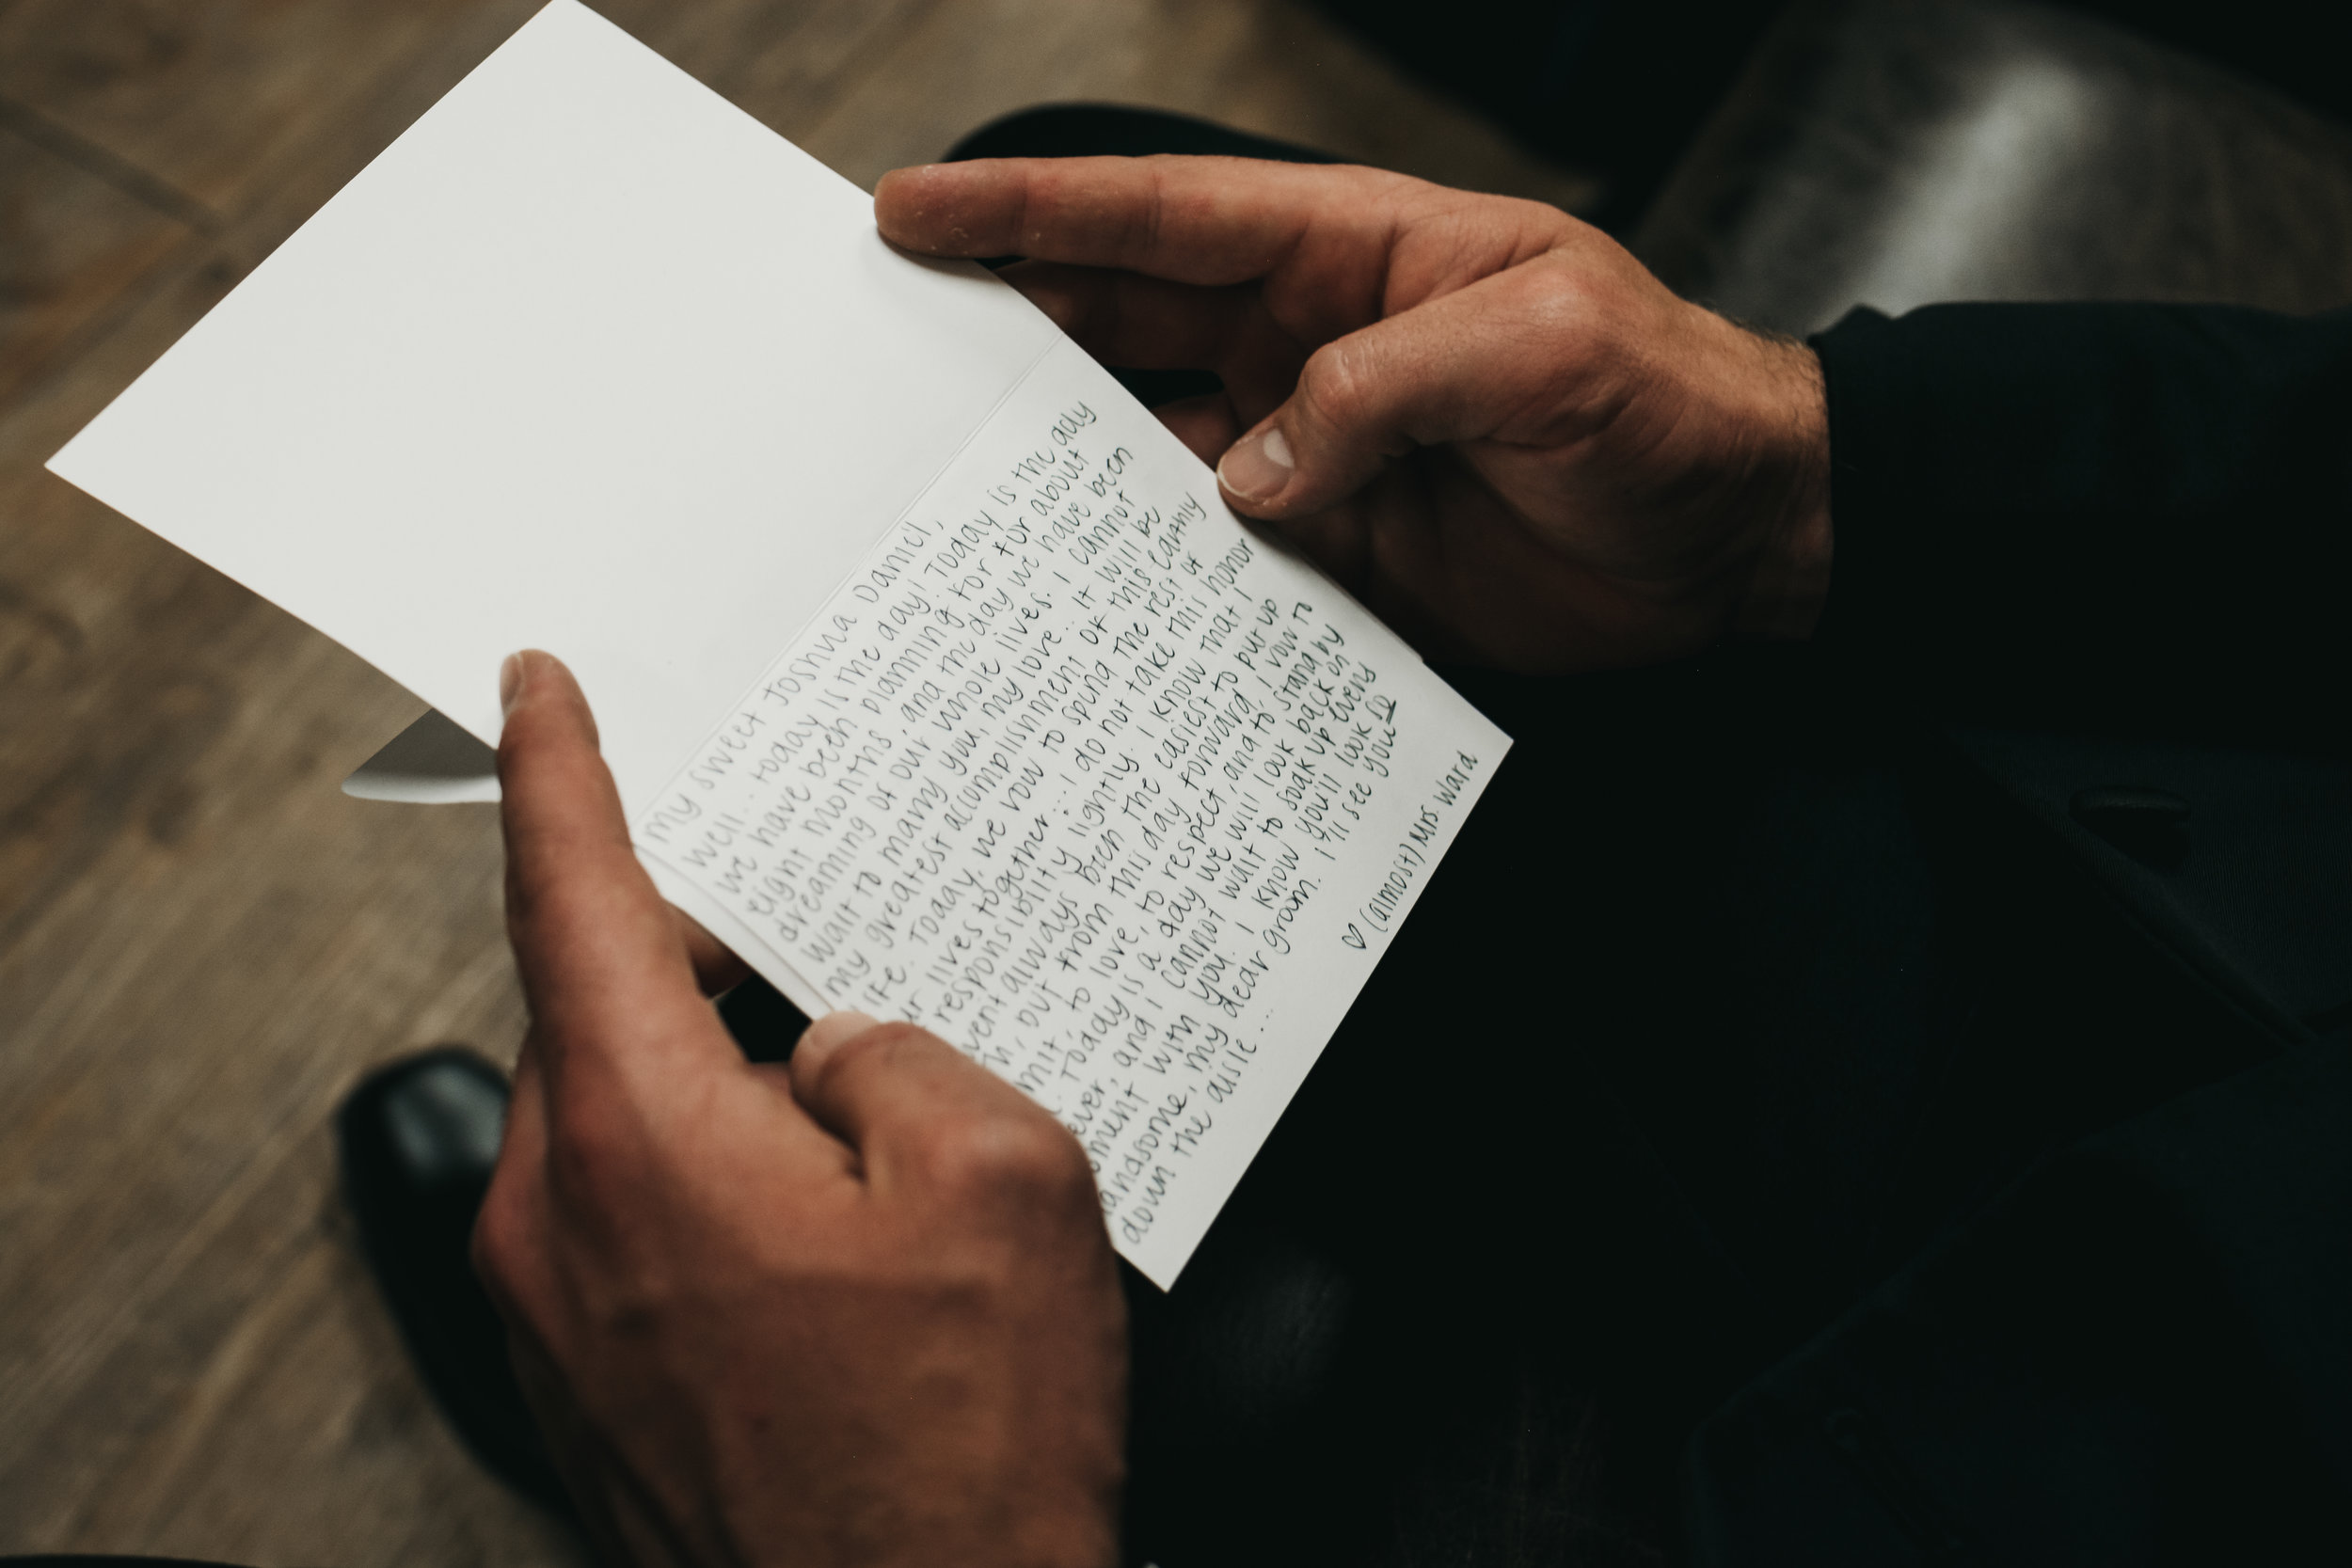 my sweet Joshua Daniel,
well... today is the day! Today is the ady
we have been planning for fur about
eight months and the day we have been
dreaming of our whole lives. I cannot
wait to marry you, my love... It will be
my greatest accomplishment of this earthly
life. Today, we vow to spend the rest of
ur lives together...I do not take this honor
responsibility lightly. I know that I
vent always been the easiest to put up
h, but from this day forward I vow to
mit, to love, to respect, and to stand by
. Today is a day we will look back on
ever, and I cannot wait to soak up every
oment with you. I know you'll look
andsome, my dear groom. I'll see you
down the aisle...
♡ (almost) Mrs. Ward